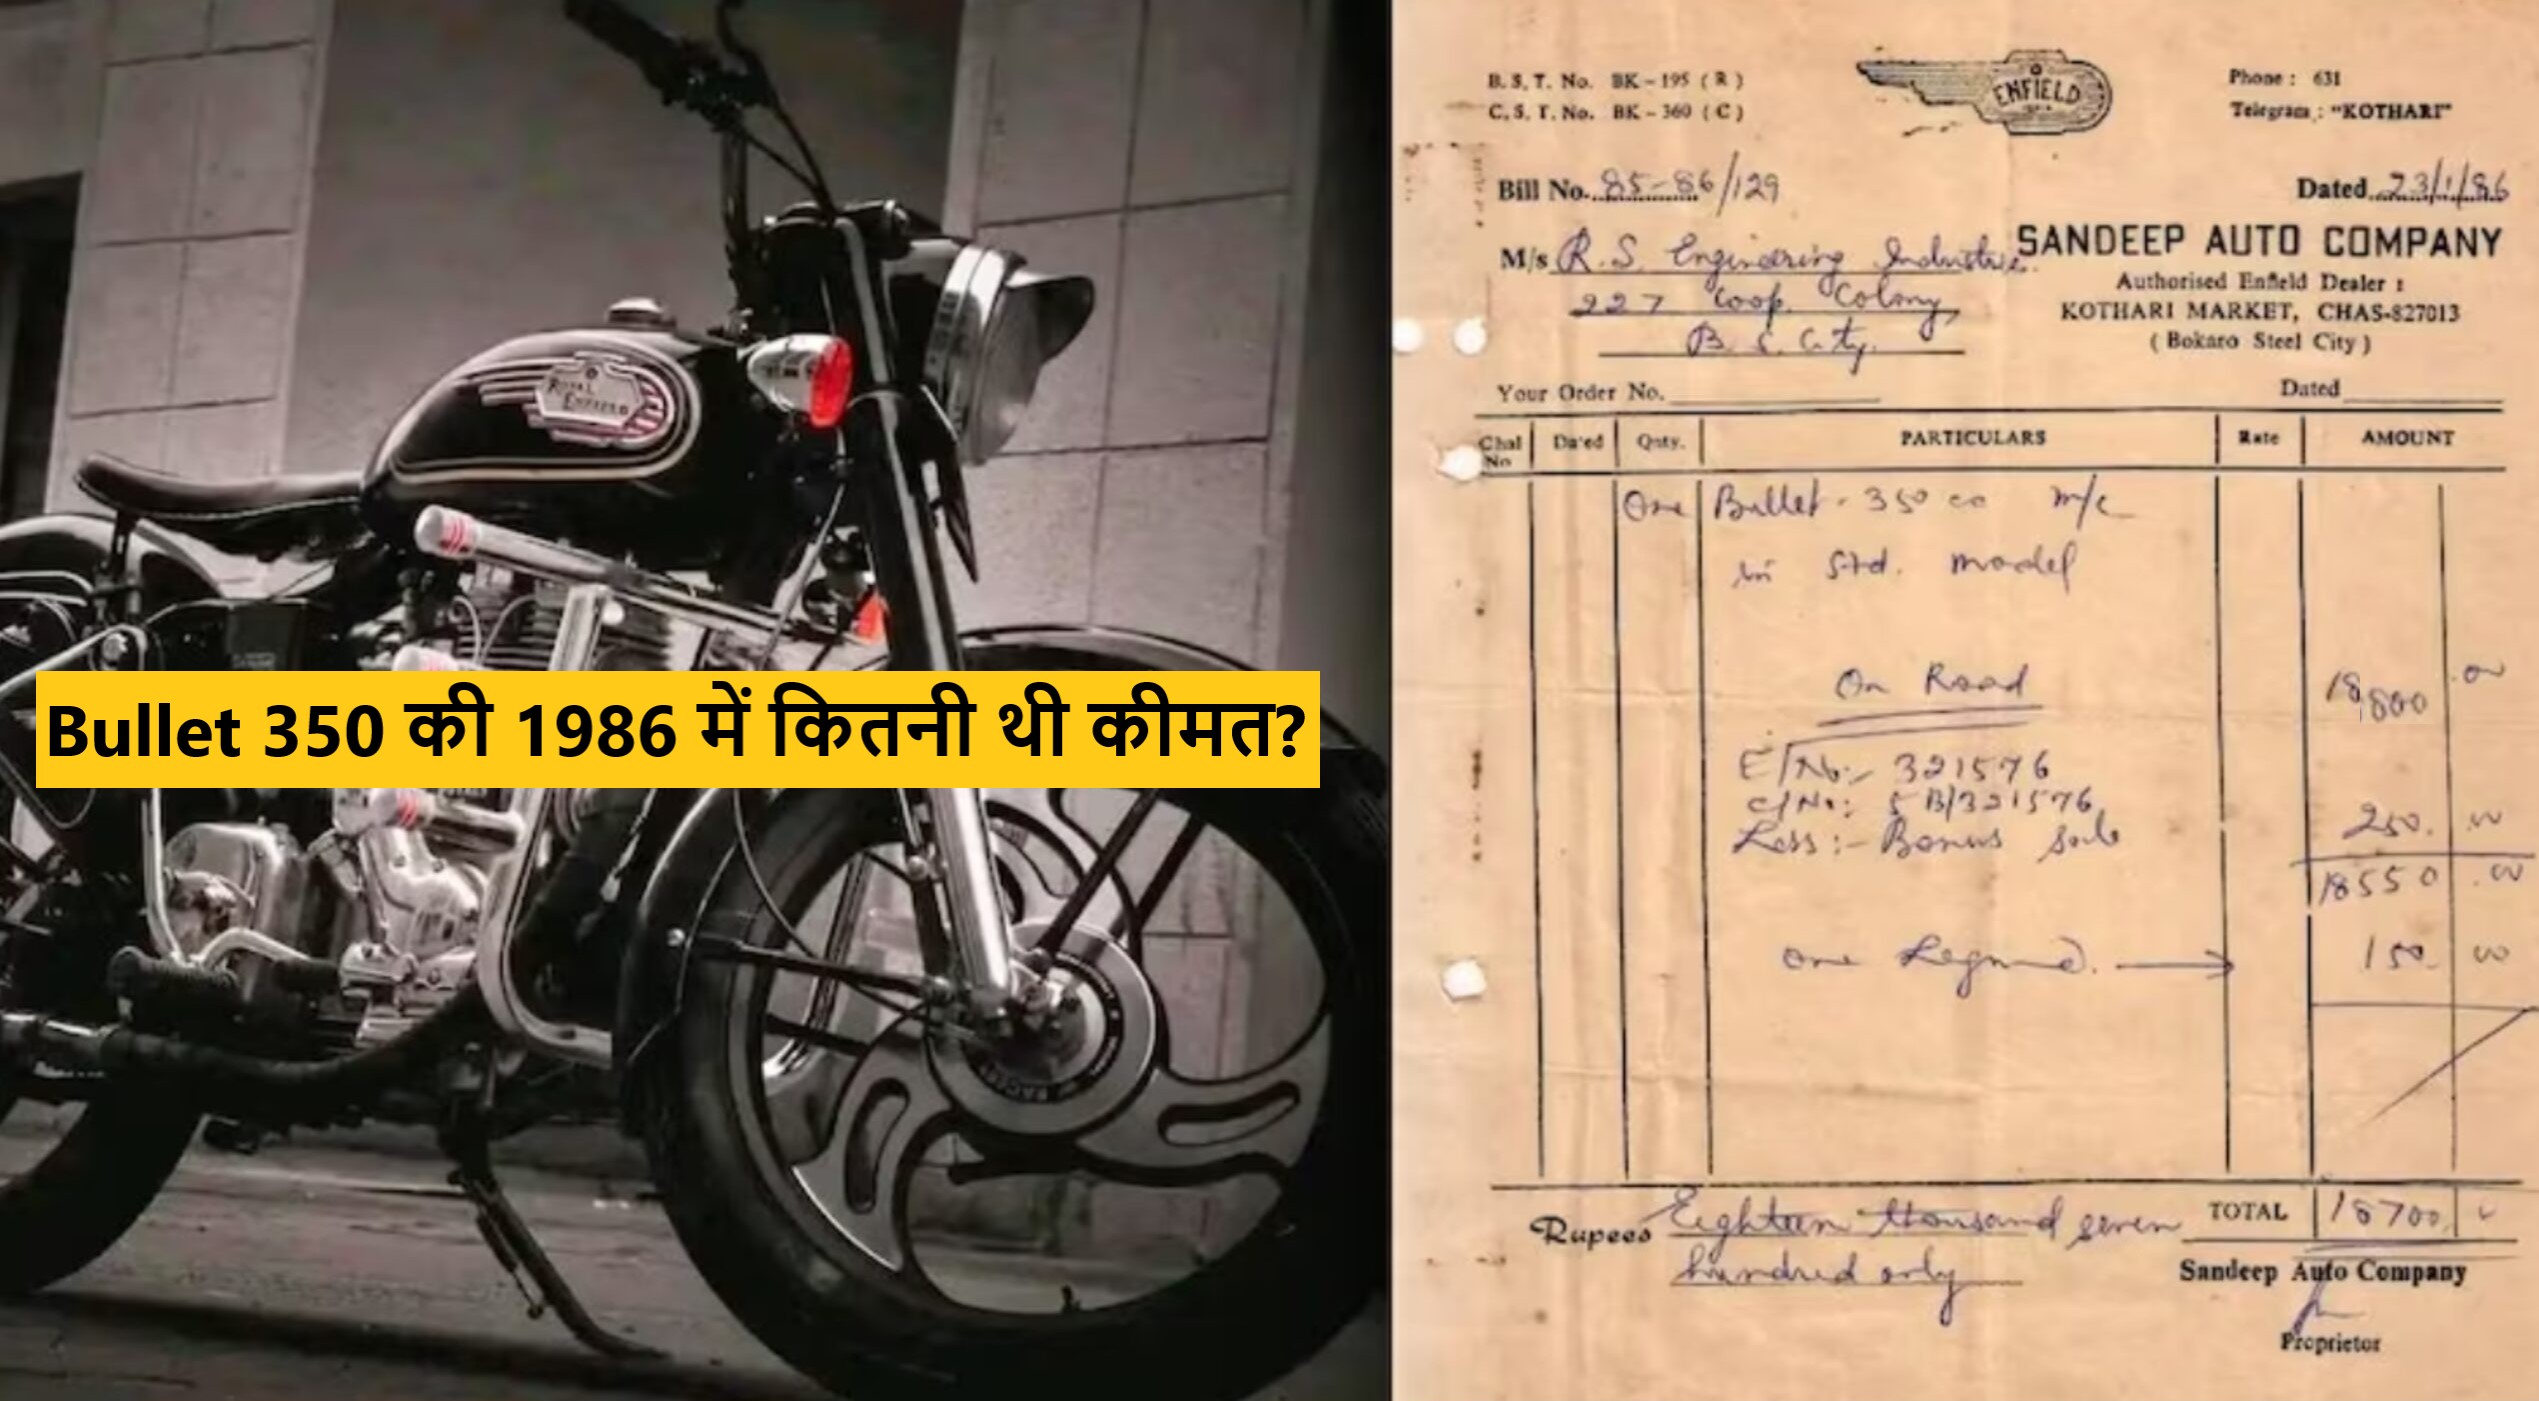 ROYAL
ENFIELD
Bullet 350 की 1986 में कितनी थी कीमत?
B.S.T. No. BK-195 (R)
C.S.T. No. BK-360 (C)
ENFIELD
Phone : 631
Telegram : "KOTHARI"
Bill No. 85-86/129
Dated 23/1/86
M/s R.S. Engineering Industries.
227 Coop. Colony,
B.S. City.
SANDEEP AUTO COMPANY
Authorised Enfield Dealer :
KOTHARI MARKET, CHAS-827013
( Bokaro Steel City )
Your Order No.
Dated
Chal No Dated Qnty. PARTICULARS Rate AMOUNT
One Bullet - 350 cc m/c
in Std. model
On Road 18,800 .00
E/No:- 321576
C/No: 5B/321576
Less :- Bonus 250. .00
18550 .00
One 150. 00
Rupees Eighteen thousand seven
hundred only
TOTAL 18700
Sandeep Auto Company
Proprietor